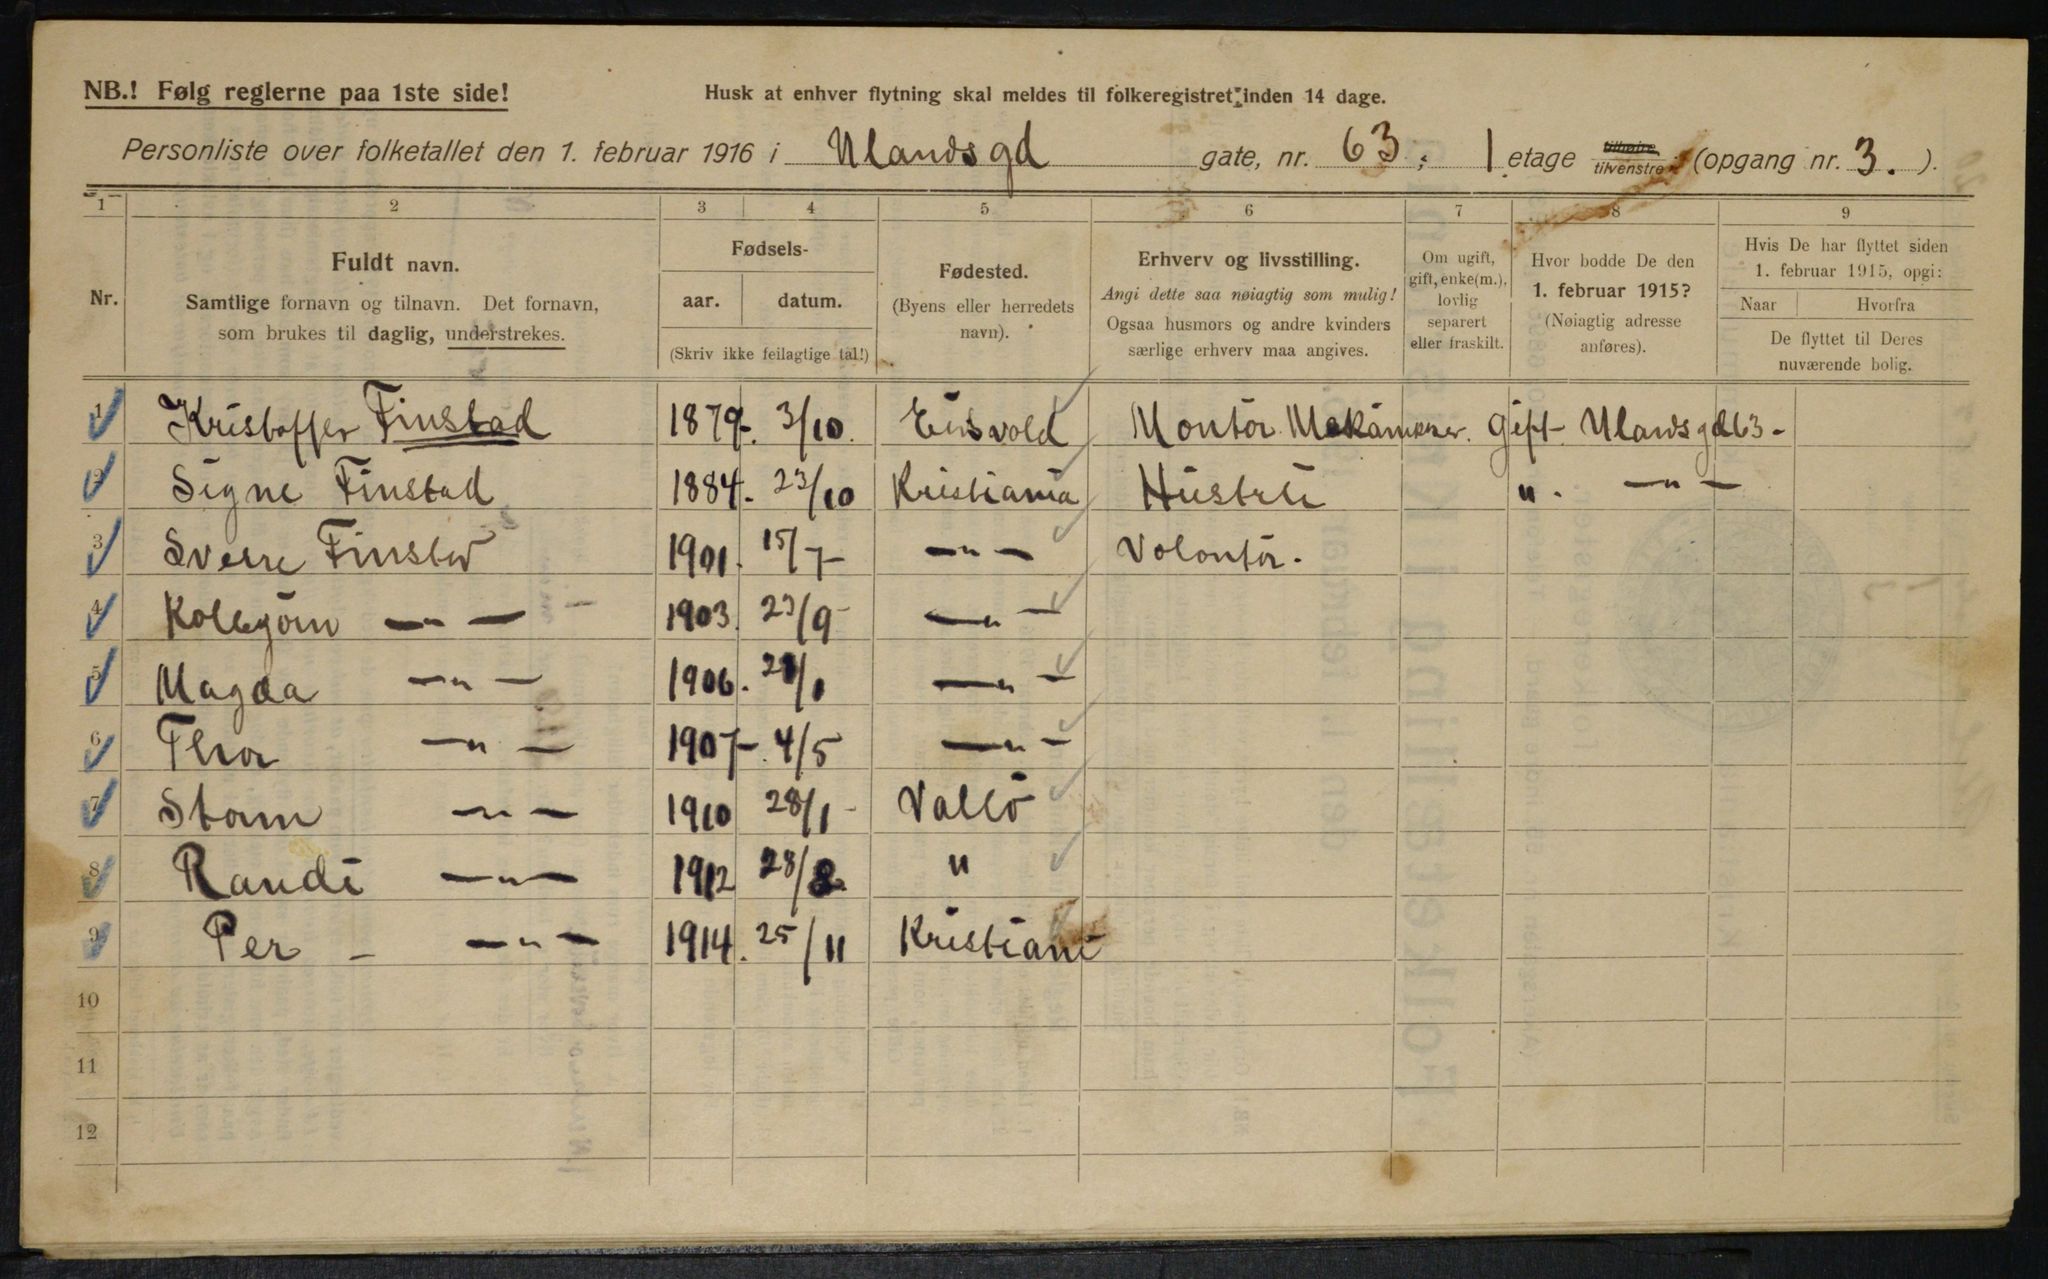 NB.! Følg reglerne paa 1ste side!
Husk at enhver flytning skal meldes til folkeregistret inden 14 dage.
Personliste over folketallet den 1. februar 1916 i Ulandsgd gate, nr. 63, 1 etage tilhøire tilvenstre (opgang nr. 3.).
1 2 3 4 5 6 7 8 9
Nr.
Fuldt navn.
Samtlige fornavn og tilnavn. Det fornavn,
som brukes til daglig, understrekes.
Fødsels-
aar. datum.
(Skriv ikke feilagtige tal!)
Fødested.
(Byens eller herredets
navn).
Erhverv og livsstilling.
Angi dette saa nøiagtig som mulig!
Ogsaa husmors og andre kvinders
særlige erhverv maa angives.
Om ugift,
gift, enke(m.),
lovlig
separert
eller fraskilt.
Hvor bodde De den
1. februar 1915?
(Nøiagtig adresse
anføres).
Hvis De har flyttet siden
1. februar 1915, opgi:
Naar Hvorfra
De flyttet til Deres
nuværende bolig.
1 Kristoffer Finstad 1879. 3/10. Eidsvold Montör Mekaniker. Gift Ulandsgd 63 -
2 Signe Finstad 1884. 23/10 Kristiania Hüstrü " . — " —
3 Sverre Finstad 1901. 15/7 — " — Volontör.
4 — " — 1903. 23/9 — " —
5 Magda — " — 1906. /1 — " —
6 Thor — " — 1907 4/5 — " —
7 — " — 1910 28/1 Vallö
8 Randi — " — 1912 28/8 "
9 Per — — " — 1914. 25/11 Kristiani
10
11
12